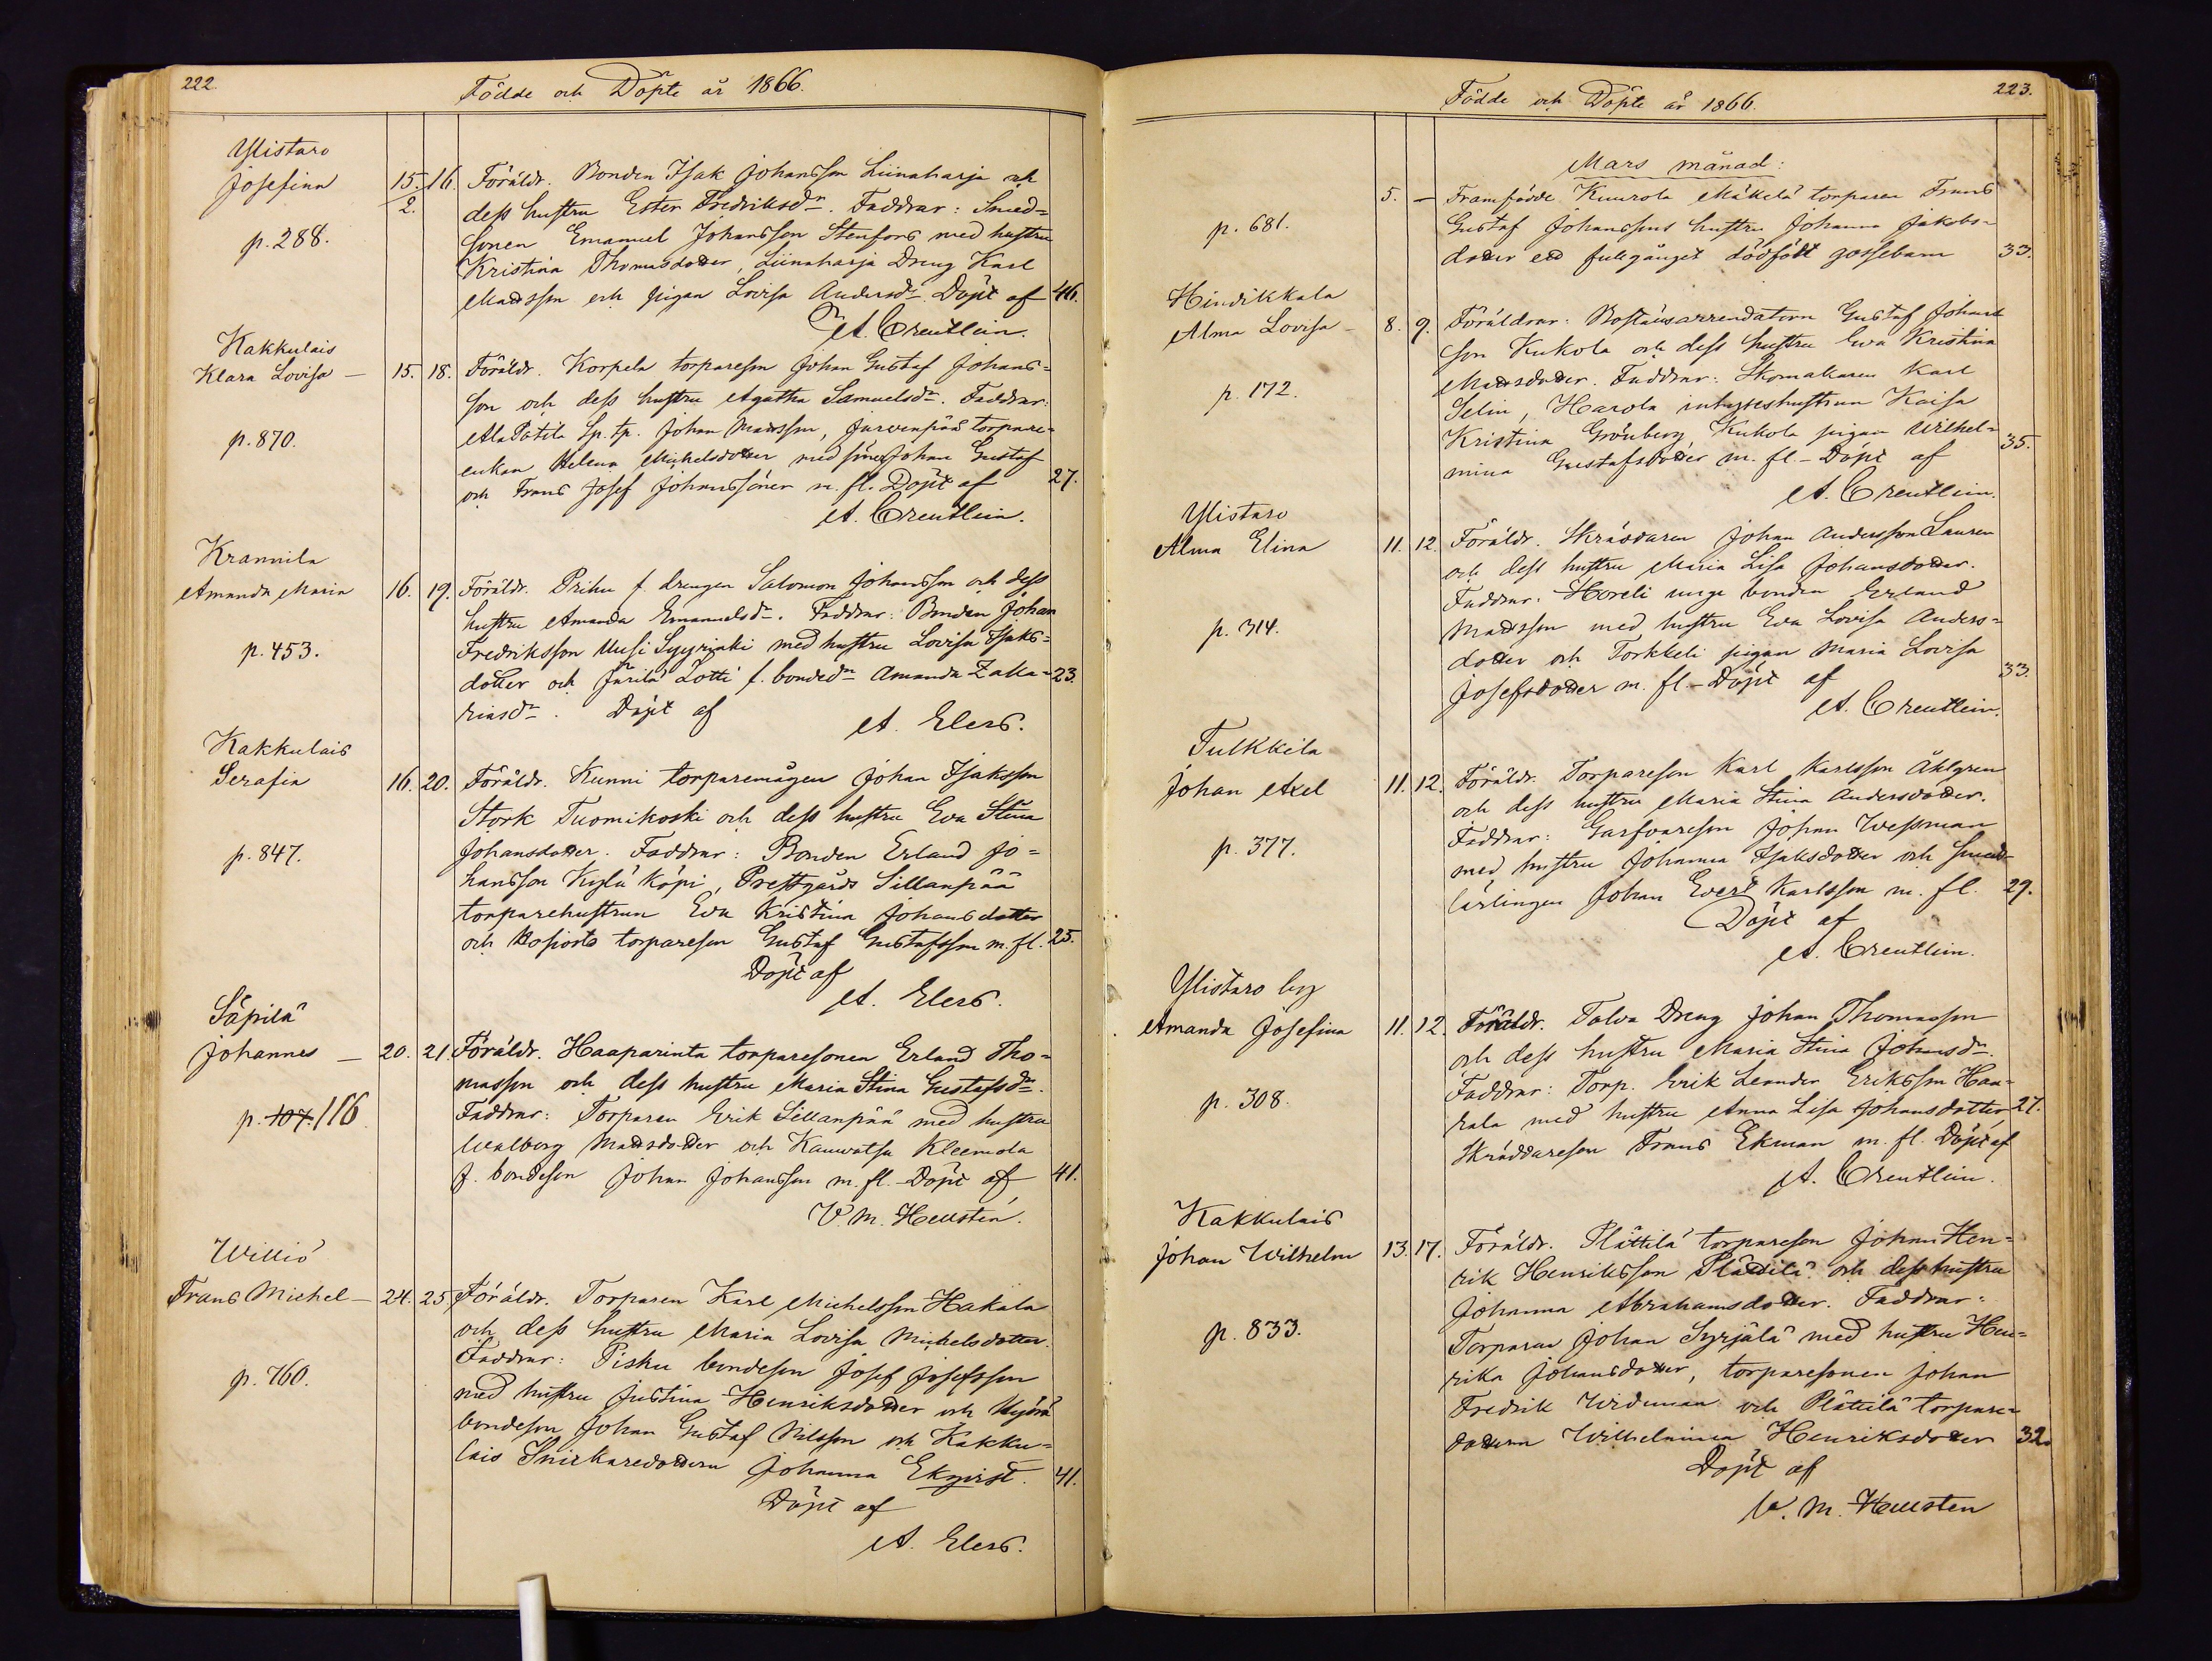 222.
Födde och Döpte år 1866.
Ylistaro
Josefina
p. 288.
15./2. 16. Föräldr. Bonden Isak Johansson Liinaharja och
dess hustru Ester Fredriksdr. Faddrar: Smed=
sonen Emanuel Johansson Stenfors med hustru
Kristina Thomasdotter, Liinaharja Dreng Karl
Mattsson och pigan Lovisa Andersdr. Döpt af 46.
A. Creutlein.
Kakkulais
Klara Lovisa –
p. 870.
15. 18. Föräldr. Korpela torpareson Johan Gustaf Johans=
son och dess hustru Agatha Samuelsdr. Faddrar:
Ala Potila Sp. tp. Johan Mattsson, Järvenpää torpare=
enkan Helena Michelsdotter med söner Johan Gustaf
och Frans Josef Johanssöner m. fl. Döpt af 27.
A. Creutlein.
Krannila
Amanda Maria
p. 453.
16. 19. Föräldr. Prihu f. drengen Salomon Johansson och dess
hustru Amanda Emanuelsdr. Faddrar: Bonden Johan
Fredriksson Uusi Syyrinki med hustru Lovisa Isaks=
dotter och Lotti f. bondedr Amanda Zaka= 23.
riasdr. Döpt af
A. Elers.
Kakkulais
Serafia
p. 847.
16. 20. Föräldr. Kunni torparemågen Johan Isaksson
Stork Tuomikoski och dess hustru Eva Stina
Johansdotter. Faddrar: Bonden Erland Jo=
hansson Kylä Köpi, Prestgårds Sillanpää
torparehustrun Eva Kristina Johansdotter
och torpareson Gustaf Gustafsson m. fl. 25.
Döpt af
A. Elers.
Säpilä
Johannes –
p. 107. 116
20. 21. Föräldr. Haaparinta torparesonen Erland Tho=
masson och dess hustru Maria Stina Gustafsdr.
Faddrar: Torparen Erik Sillanpää med hustru
Walborg Mattsdotter och Kauvatsa Kleemola
f. bondeson Johan Johansson m. fl. – Döpt af 41.
V. M. Hellsten.
Williö
Frans Michel –
p. 760.
24. 25. Föräldr. Torparen Karl Michelsson Hakala
och dess hustru Maria Lovisa Michelsdotter.
Faddrar: Pisku bondeson Josef Josefsson
med hustru Justina Henriksdotter och
bondeson Johan Gustaf Nilsson och Kakku=
lais Snickaredottern Johanna Ekqvist. 41.
Döpt af
A. Elers.
223.
Födde och Döpte år 1866.
Mars månad:
p. 681.
5. – Framfödde Kuurola Mäkelä torparen Frans
Gustaf Johanssons hustru Johanna Jakobs=
dotter ett fullgånget dödfödt gossebarn 33.
Hindikkala
Alma Lovisa –
p. 172.
8. 9. Föräldrar: Bostälsarrendatorn Gustaf Johans
son Kukola och dess hustru Eva Kristina
Mattsdotter. Faddrar: Skomakaren Karl
Selin, Harola inhyseshustrun Kaisa
Kristina Grönberg, Kukola pigan Wilhel=
mina Gustafsdotter m. fl. – Döpt af 35.
A. Creutlein.
Ylistaro
Alma Elina
p. 314.
11. 12. Föräldr. Skräddaren Johan Andersson Lauren
och dess hustru Maria Lisa Johansdotter.
Faddrar: Horeli unge bonden Erland
Mattsson med hustru Eva Lovisa Anders=
dotter och Torkkeli pigan Maria Lovisa
Josefsdotter m. fl. – Döpt af 33.
A. Creutlein.
Tulkkila
Johan Axel
p. 377.
11. 12. Föräldr. Torpareson Karl Karlsson Åhlgren
och dess hustru Maria Stina Andersdotter.
Faddrar: Garfvareson Johan Wessman
med hustru Johanna Isaksdotter och Smeds=
lärlingen Johan Evert Karlsson m. fl. 29.
Döpt af
A. Creutlein.
Ylistaro by
Amanda Josefina
p. 308.
11. 12. Föräldr. Talva Dreng Johan Thomasson
och dess hustru Maria Stina Johansdr.
Faddrar: Torp. Erik Leander Eriksson Haa=
kala med hustru Anna Lisa Johansdotter 27.
Skräddareson Frans Ekman m. fl. Döpt af
A. Creutlein.
Kakkulais
Johan Wilhelm
p. 833.
13. 17. Föräldr. Plättilä torpareson Johan Hen=
rik Henriksson Plättilä och dess hustru
Johanna Abrahamsdotter. Faddrar:
Torparen Johan Syrjälä med hustru Hen=
rika Johansdotter, torparesonen Johan
Fredrik Widman och Plättilä torpare=
dottern Wilhelmina Henriksdotter 32.
Döpt af
V. M. Hellsten